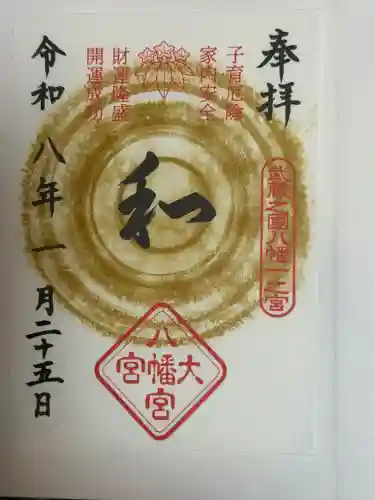 奉拝
武蔵之国八幡一之宮
子育厄除
家内安全
財運隆盛
開運成功
和
八幡大宮宮
令和八年一月二十五日